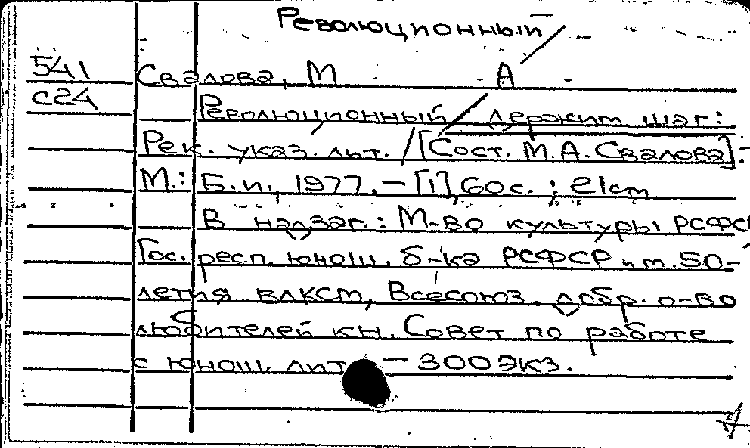 Революционный /
541 Свалова, М А
С24 Революционный / держит шаг:
Рек. указ. лит. / [Сост. М.А. Свалова].-
М.: Б.и., 1977. - [1], 60 с. ; 21 см
В надзаг.: М-во культуры РСФСР
Гос. респ. юнош. б-ка РСФСР им. 50-
летия ВЛКСМ, Всесоюз. добр. о-во
любителей кн. Совет по работе
с юнош. лит. - 300 экз.